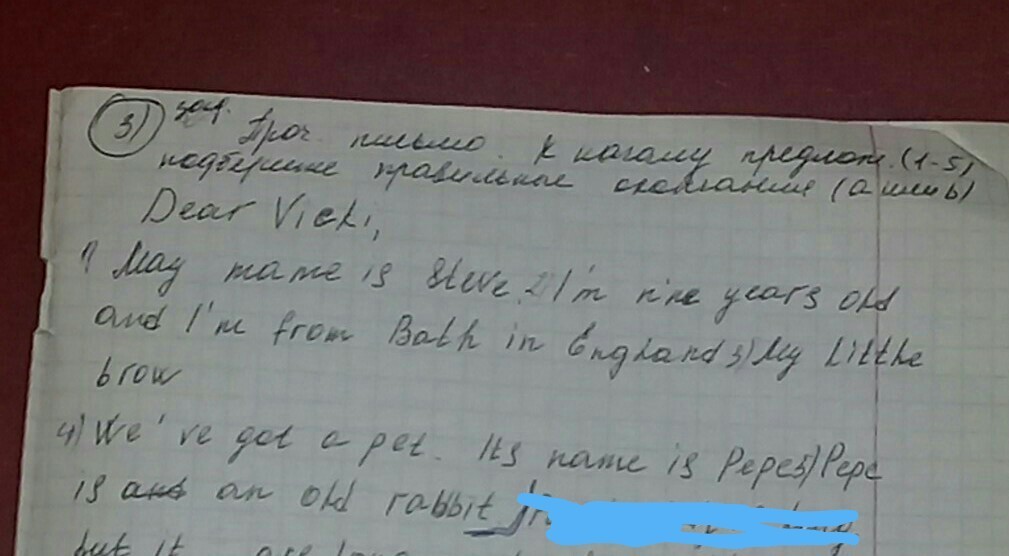 3) зад. Проч. письмо. К началу предлож. (1-5)
подберите правильное окончание (а или b)
Dear Vicki,
1) May name is Steve 2) I'm nine years old
and I'm from Bath in England 3) My Litthe
brow
4) We've got a pet. Its name is Pepe 5) Pepe
is and an old rabbit
but it are long